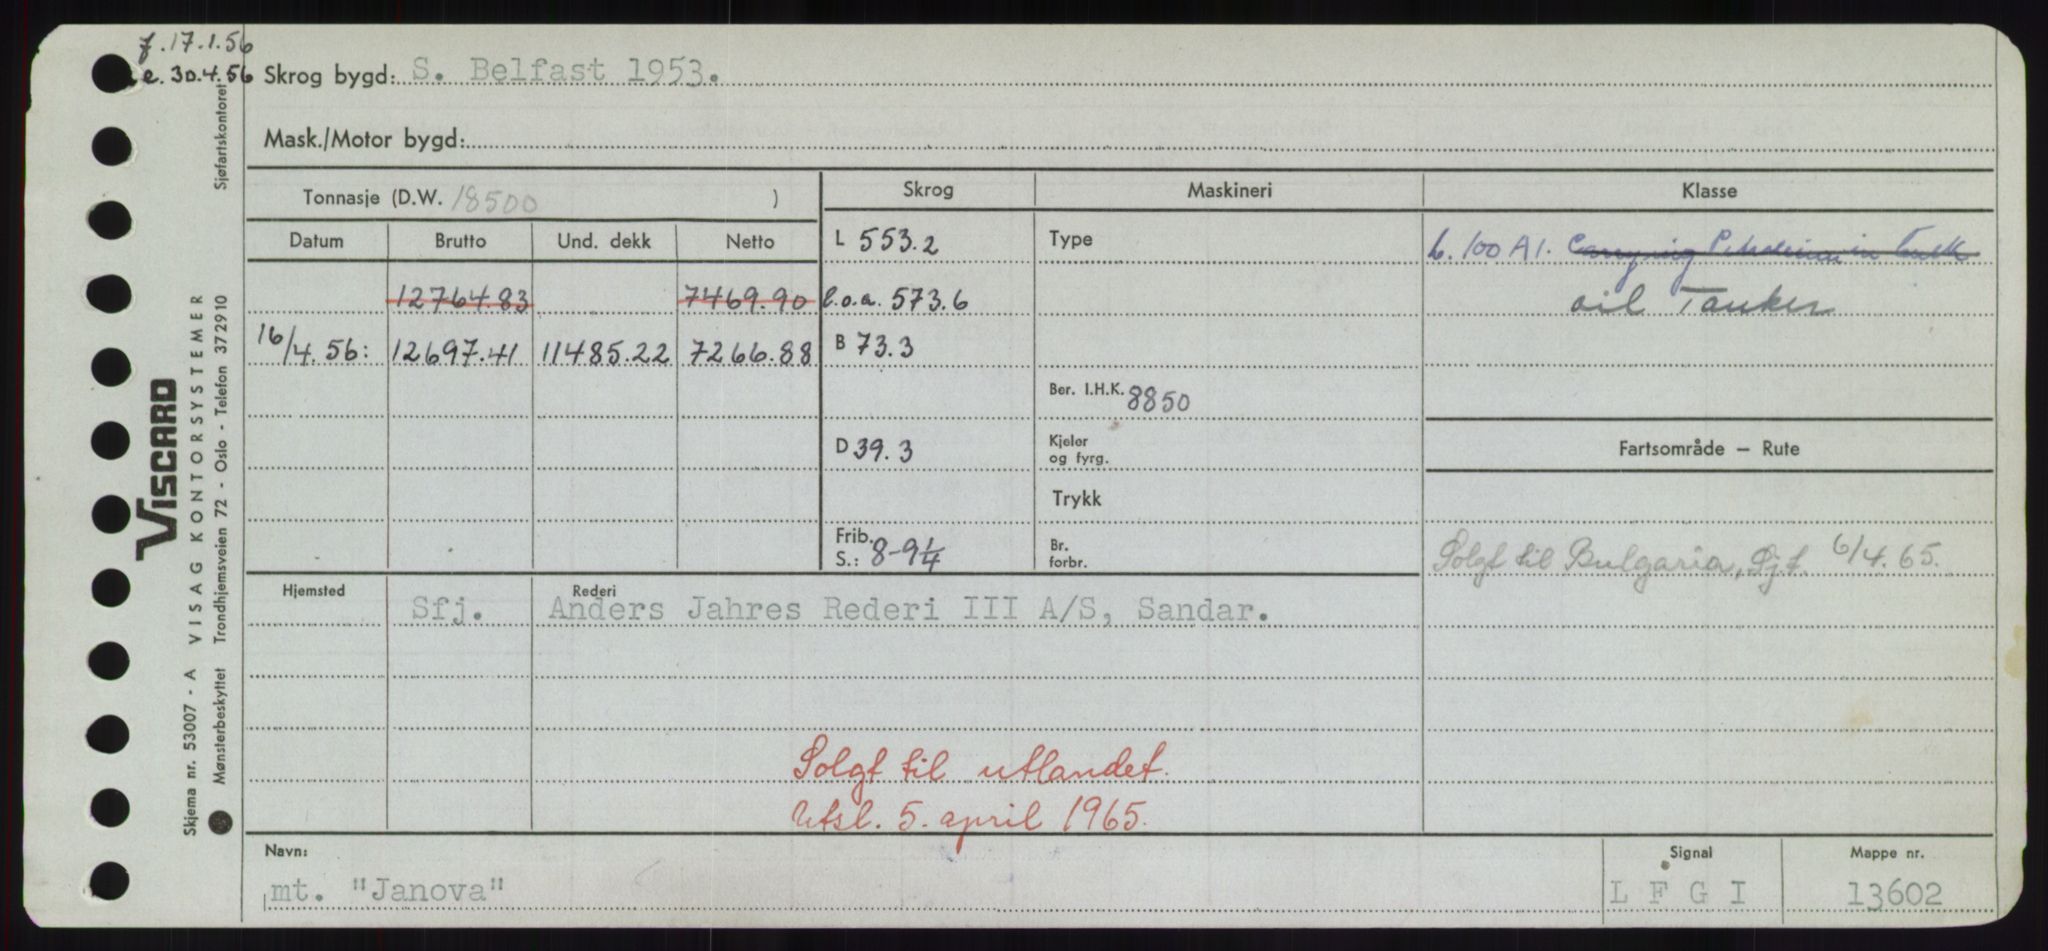 f. 17.1.56
e. 30.4.56
Skrog bygd: S. Belfast 1953.
Mask./Motor bygd:
Tonnasje (D.W. 18500 )
Skrog
Maskineri
Klasse
Datum
Brutto
Und. dekk
Netto
L 553.2
Type
L. 100 A1. Carrying Petroleum in bulk
12764.83
7469.90
l.o.a. 573.6
oil Tanker
16/4. 56:
12697.41
11485.22
7266.88
B 73.3
Ber. I.H.K. 8850
D 39.3
Kjeler
og fyrg.
Fartsområde — Rute
Trykk
Frib.
S.: 8-9 1/4
Br.
forbr.
Solgt til Bulgaria, Sjf. 6/4. 65.
Hjemsted
Rederi
Sfj.
Anders Jahres Rederi III A/S, Sandar.
Solgt til utlandet.
Utsl. 5. april 1965.
Navn:
mt. "Janova"
Signal
L F G I
Mappe nr.
13602
VISCARD
Skjema nr. 53007 - A VISAG KONTORSYSTEMER
Mønsterbeskyttet Trondhjemsveien 72 - Oslo - Telefon 372910 Sjøfartskontoret